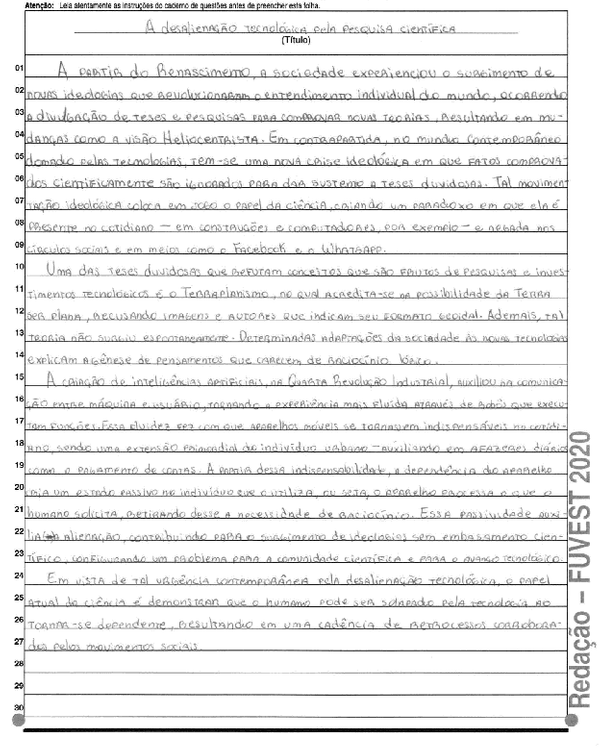 Atenção: Leia atentamente as instruções do caderno de questões antes de preencher esta folha.
A desalienação tecnológica pela pesquisa científica
(Título)
01 A partir do Renascimento, a sociedade experienciou o surgimento de
02 novas ideologias que revolucionaram o entendimento individual do mundo, ocorrendo
03 a divulgação de teses e pesquisas para comprovar novas teorias, resultando em mu-
04 danças como a visão Heliocentrista. Em contrapartida, no mundo contemporâneo
05 domado pelas tecnologias, tem-se uma nova crise ideológica em que fatos comprova-
06 dos cientificamente são ignorados para dar sustento a teses duvidosas. Tal movimen-
07 tação ideológica coloca em jogo o papel da ciência, criando um paradoxo em que ela é
08 presente no cotidiano — em construções e computadores, por exemplo — e apagada nos
09 círculos sociais e em meios como o Facebook e o Whatsapp.
10 Uma das teses duvidosas que refutam conceitos que são frutos de pesquisas e inves-
11 timentos tecnológicos é o Terraplanismo, no qual acredita-se na possibilidade da Terra
12 ser plana, recusando imagens e autores que indicam seu formato geoidal. Ademais, tal
13 teoria não surgiu espontaneamente. Determinadas adaptações da sociedade às novas tecnologias
14 explicam a gênese de pensamentos que carecem de raciocínio lógico.
15 A criação de inteligências artificiais, na Quarta Revolução Industrial, auxiliou na comunica-
16 ção entre máquina e usuário, tornando a experiência mais fluida através de robôs que execu-
17 tam funções. Essa fluidez fez com que aparelhos móveis se tornassem indispensáveis no cotidi-
18 ano, sendo uma extensão primordial do indivíduo urbano — auxiliando em afazeres diários
19 como o pagamento de contas. A partir dessa indispensabilidade, a dependência do aparelho
20 cria um estado passivo no indivíduo que o utiliza, ou seja, o aparelho processa o que o
21 humano solicita, retirando desse a necessidade de raciocínio. Essa passividade auxi-
22 lia a alienação, contribuindo para o surgimento de ideologias sem embasamento cien-
23 tífico, configurando um problema para a comunidade científica e para o avanço tecnológico.
24 Em vista de tal urgência contemporânea pela desalienação tecnológica, o papel
25 atual da ciência é demonstrar que o humano pode ser solapado pela tecnologia ao
26 tornar-se dependente, resultando em uma cadência de retrocessos corrobora-
27 dos pelos movimentos sociais.
28
29
30
Redação – FUVEST 2020